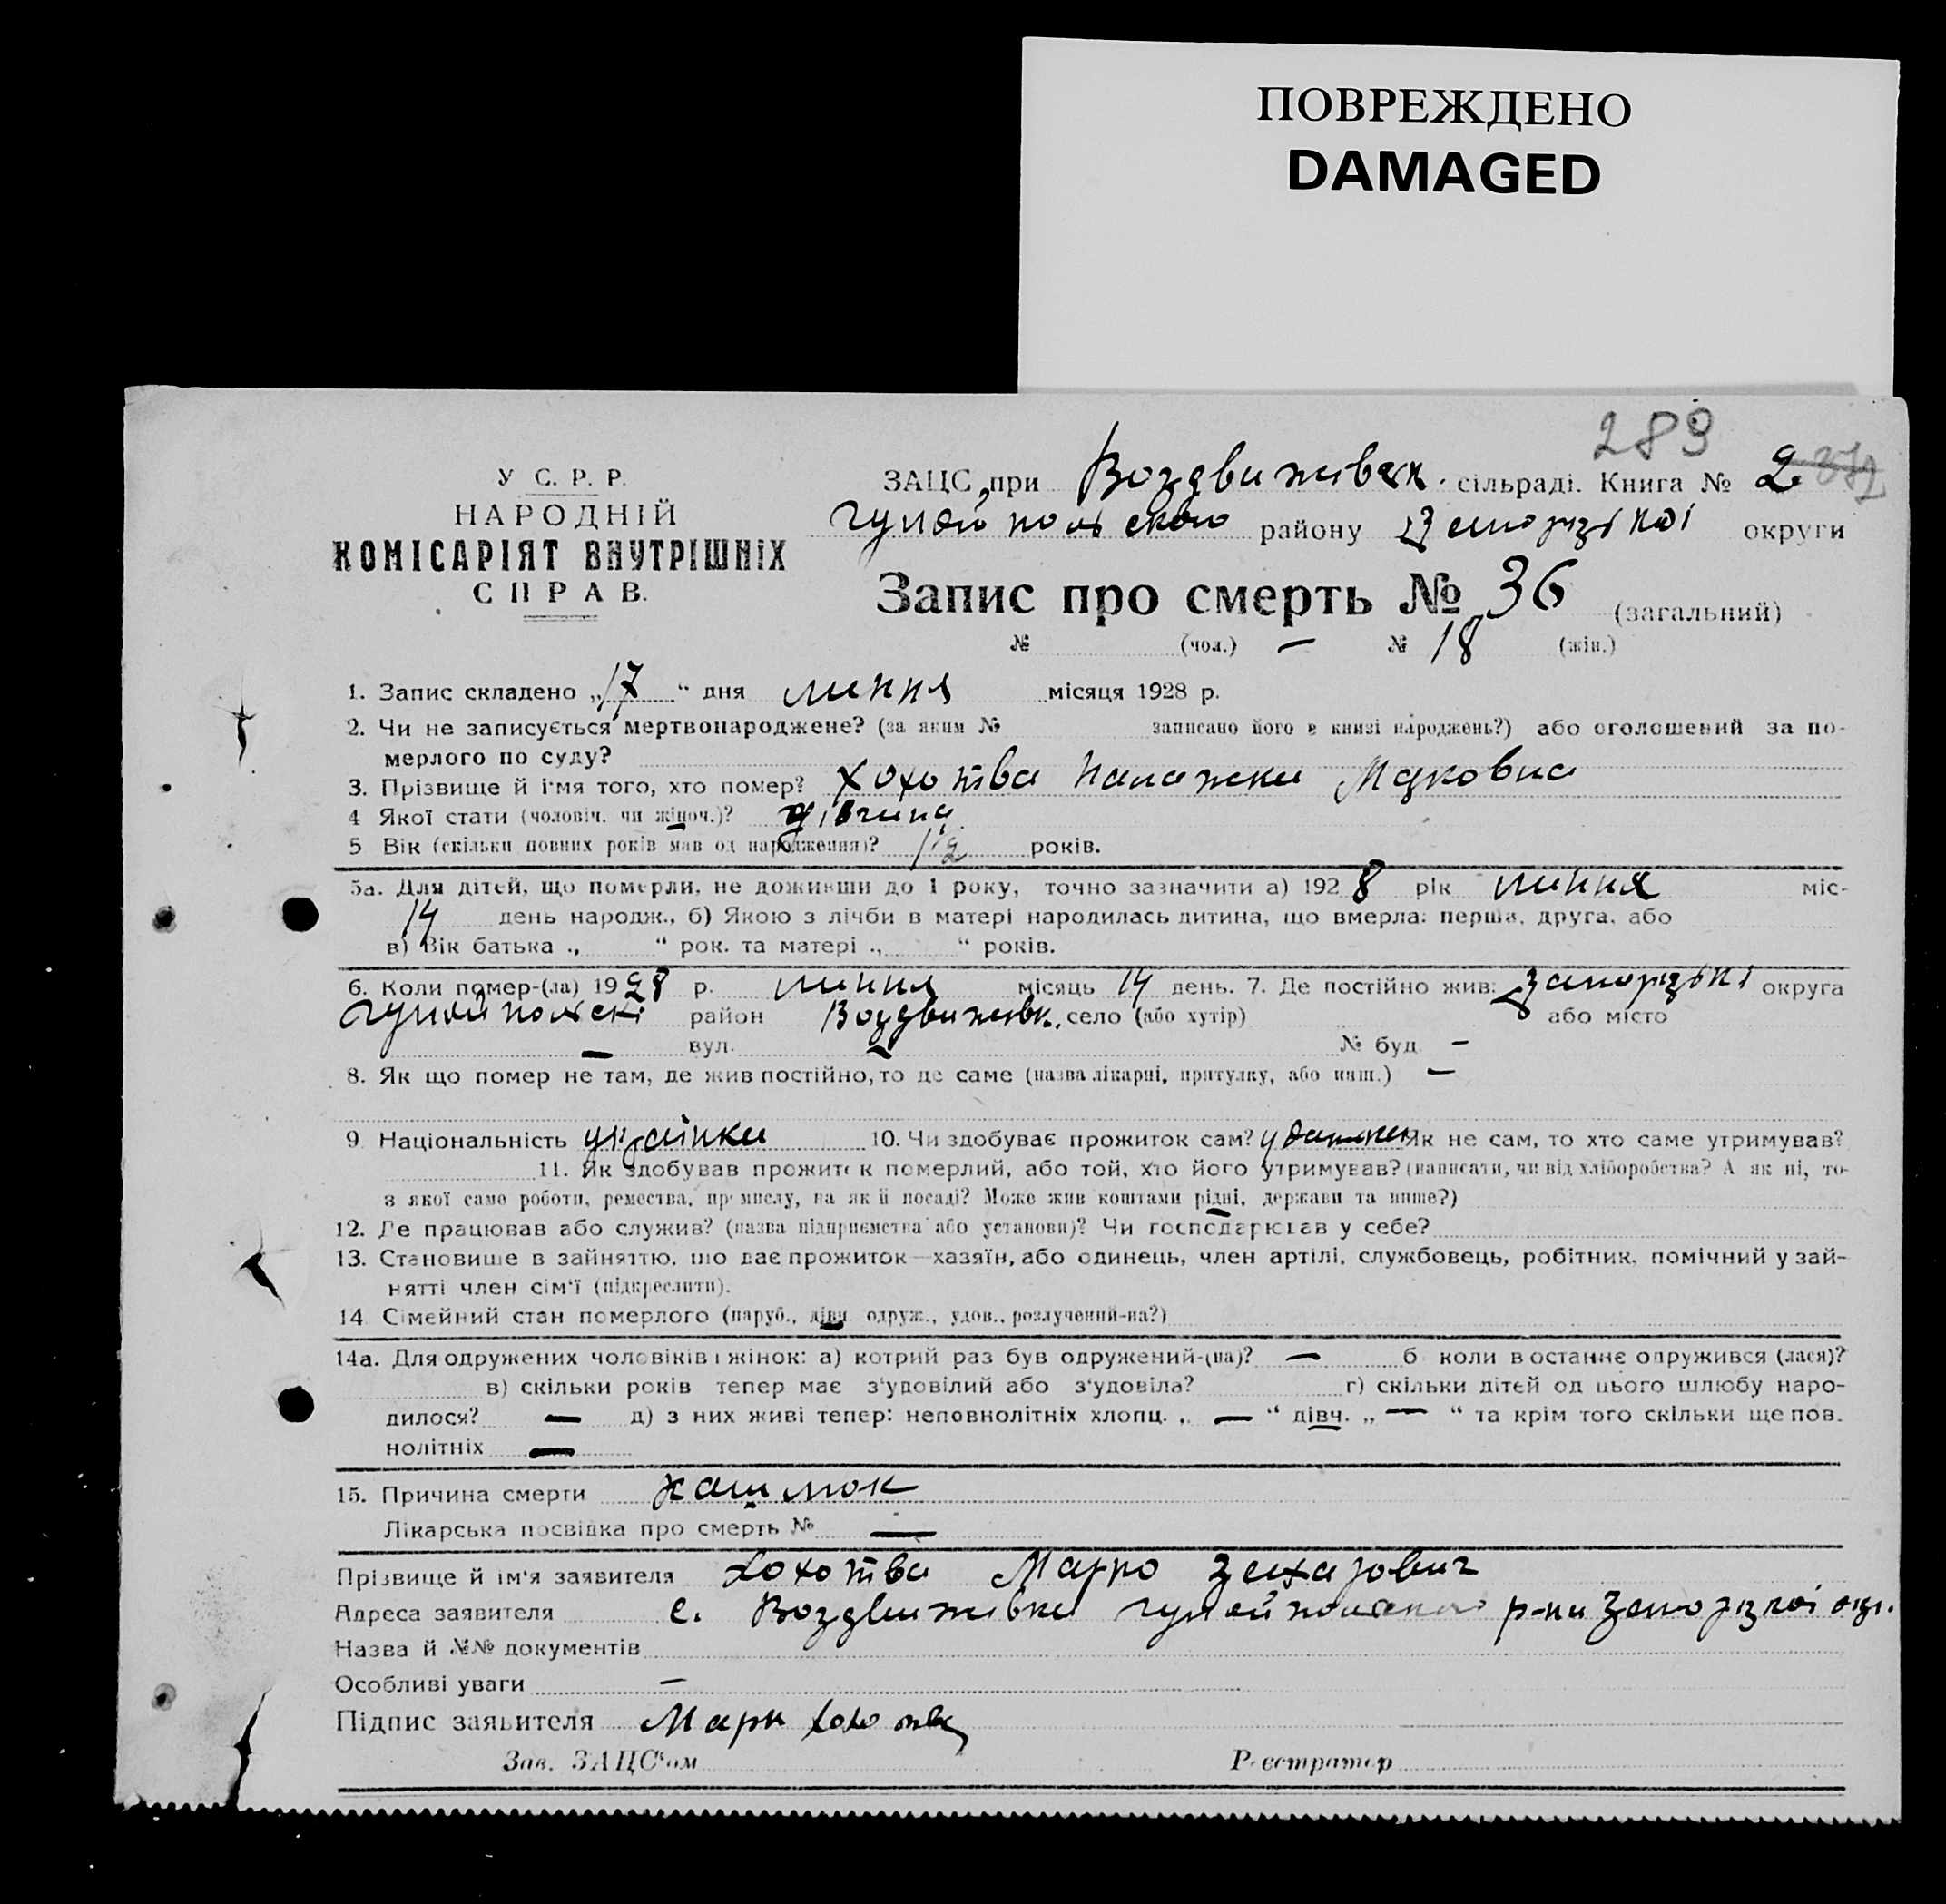 ПОВРЕЖДЕНО
DAMAGED
289
У С. Р. Р.
НАРОДНІЙ
КОМІСАРІЯТ ВНУТРІШНІХ
СПРАВ.
ЗАЦС при Воздвижівськ. сільраді. Книга № 2
Гуляйпольского району Запорізької округи
Запис про смерть № 36 (загальний)
№ (чол.) — № 18 (жін.)
1. Запис складено „17“ дня липня місяця 1928 р.
2. Чи не записується мертвонароджене? (за яким № записано його в книзі народжень?) або оголошений за по-
мерлого по суду?
3. Прізвище й імя того, хто помер? Хохотва Палажка Марковна
4 Якої стати (чоловіч. чи жіноч.)? дівчина
5 Вік (скільки повних років мав од народження)? 1½ років.
5а. Для дітей, що померли, не доживши до 1 року, точно зазначити а) 1928 рік липня міс-
14 день народж., б) Якою з лічби в матері народилась дитина, що вмерла: перша, друга, або
в) Вік батька „ “ рок. та матері „ “ років.
6. Коли помер-(ла) 1928 р. липня місяць 14 день. 7. Де постійно жив: Запорізькі округа
Гуляйпольскі район Воздвижівк. село (або хутір) або місто
— вул. — № буд —
8. Як що помер не там, де жив постійно, то де саме (назва лікарні, притулку, або инш.) —
9 Національність українка 10. Чи здобуває прожиток сам? Як не сам, то хто саме утримував?
11. Як здобував прожиток померлий, або той, хто його утримував? (написати, чи від хліборобства? А як ні, то
з якої саме роботи, ремества, промислу, на якій посаді? Може жив коштами рідні, держави та инше?)
12. Де працював або служив? (назва підприємства або установи)? Чи господарював у себе?
13. Становище в зайняттю, що дає прожиток—хазяїн, або одинець, член артілі, службовець, робітник, помічний у зай-
нятті член сім'ї (підкреслити).
14 Сімейний стан померлого (паруб., дівч. одруж., удов., розлучений-на?)
14а. Для одружених чоловіків і жінок: а) котрий раз був одружений-(на)? — б коли востаннє одружився (лася)?
в) скільки років тепер має з'удовілий або з'удовіла? г) скільки дітей од цього шлюбу наро-
дилося? — д) з них живі тепер: неповнолітніх хлопц. „ — “ дівч. „ — “ та крім того скільки ще пов.
нолітніх —
15. Причина смерти кашлюк
Лікарська посвідка про смерть № —
Прізвище й ім'я заявителя Хохотва Марко Захарович
Адреса заявителя с. Воздвижівка Гуляйпольского р-на Запорізкої окр.
Назва й №№ документів
Особливі уваги —
Підпис заявителя Марк Хохотва
Зав. ЗАЦС'ом Реєстратор